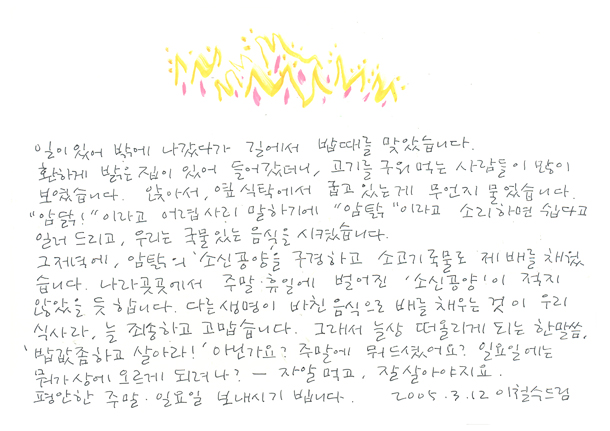 일이 있어 밖에 나갔다가 길에서 밥때를 맞았습니다.
환하게 밝은 집이 있어 들어갔더니, 고기를 구워 먹는 사람들이 많이
보였습니다. 앉아서, 옆 식탁에서 굽고 있는게 무언지 물었습니다.
"암탉!"이라고 어렵사리 말하기에 "암탉"이라고 소리하면 쉽다고
일러 드리고, 우리는 국물있는 음식을 시켰습니다.
그 저녁에, 암탉의 '소신공양'을 구경하고 소고기국물로 제 배를 채웠
습니다. 나라 곳곳에서 주말·휴일에 벌어진 '소신공양'이 적지
않았을 듯 합니다. 다른 생명이 바친 음식으로 배를 채우는 것이 우리
식사라, 늘 죄송하고 고맙습니다. 그래서 늘상 떠올리게 되는 한말씀,
'밥값좀하고 살아라!' 아닌가요? 주말에 뭐 드셨어요? 일요일에는
뭐가 상에 오르게 되려나? - 자알 먹고, 잘 살아야지요.
평안한 주말·일요일 보내시기 빕니다. 2005.3.12 이철수드림